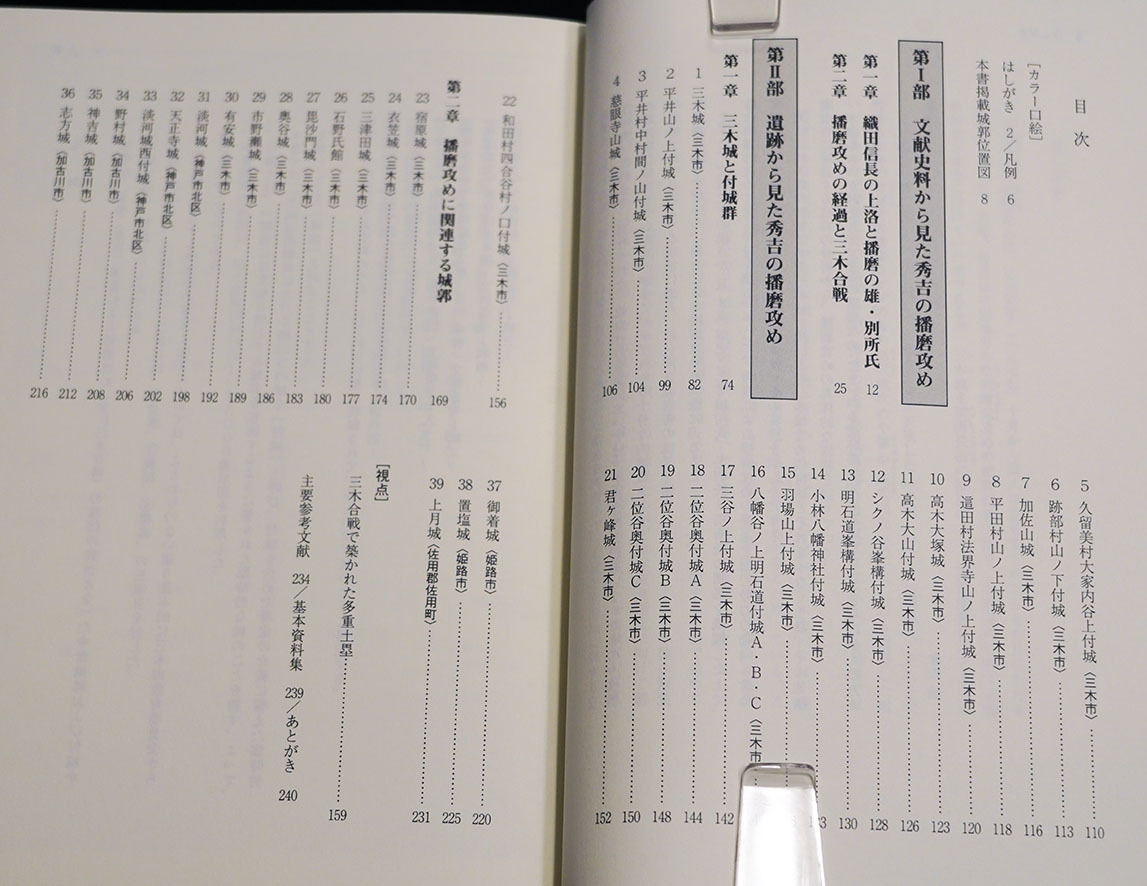 目次
［カラー口絵］
はしがき 2／凡例 6
本書掲載城郭位置図 8
第Ⅰ部 文献史料から見た秀吉の播磨攻め
第一章 織田信長の上洛と播磨の雄・別所氏 12
第二章 播磨攻めの経過と三木合戦 25
第Ⅱ部 遺跡から見た秀吉の播磨攻め
第一章 三木城と付城群 74
1 三木城〈三木市〉 82
2 平井山ノ上付城〈三木市〉 99
3 平井村中村間ノ山付城〈三木市〉 104
4 慈眼寺山城〈三木市〉 106
5 久留美村大家内谷上付城〈三木市〉 110
6 跡部村山ノ下付城〈三木市〉 113
7 加佐山城〈三木市〉 116
8 平田村山ノ上付城〈三木市〉 118
9 這田村法界寺山ノ上付城〈三木市〉 120
10 高木大塚城〈三木市〉 123
11 高木大山付城〈三木市〉 126
12 シクノ谷峯構付城〈三木市〉 128
13 明石道峯構付城〈三木市〉 130
14 小林八幡神社付城〈三木市〉 133
15 羽場山上付城〈三木市〉
16 八幡谷ノ上明石道付城A・B・C〈三木市
17 三谷ノ上付城〈三木市〉 142
18 二位谷奥付城A〈三木市〉 144
19 二位谷奥付城B〈三木市〉 148
20 二位谷奥付城C〈三木市〉 150
21 君ヶ峰城〈三木市〉 152
22 和田村四合谷村ノ口付城〈三木市〉 156
第二章 播磨攻めに関連する城郭 169
23 宿原城〈三木市〉 170
24 衣笠城〈三木市〉 174
25 三津田城〈三木市〉 177
26 石野氏館〈三木市〉 180
27 毘沙門城〈三木市〉 183
28 奥谷城〈三木市〉 186
29 市野瀬城〈三木市〉 189
30 有安城〈三木市〉 192
31 淡河城〈神戸市北区〉 198
32 天正寺城〈神戸市北区〉 202
33 淡河城西付城〈神戸市北区〉 206
34 野村城〈加古川市〉 208
35 神吉城〈加古川市〉 212
36 志方城〈加古川市〉 216
37 御着城〈姫路市〉 220
38 置塩城〈姫路市〉 225
39 上月城〈佐用郡佐用町〉 231
［視点］
三木合戦で築かれた多重土塁 159
主要参考文献 234／基本資料集 239／あとがき 240